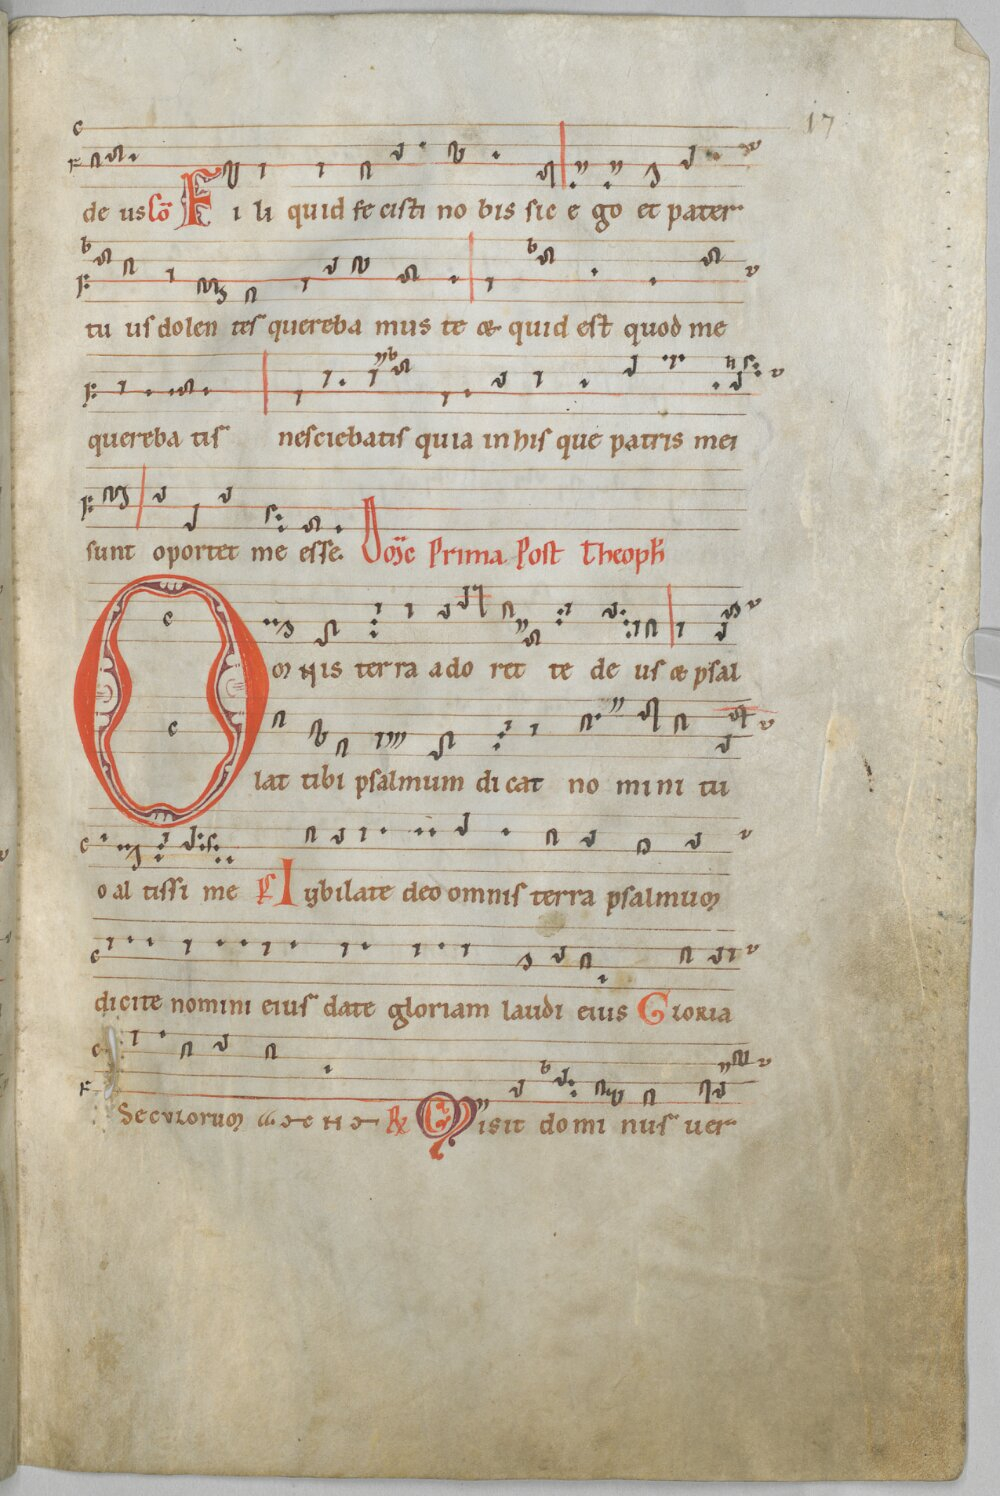 17
de us Cō F i li quid fe cisti no bis sic e go et pater
tu us dolen tes quereba mus te & quid est quod me
quereba tis nesciebatis quia in his que patris mei
sunt oportet me esse. Prima Post Theoph
OMNIS terra ado ret te de us & psal
lat tibi psalmum di cat no mini tu
o al tissi me Ps Iubilate deo omnis terra psalmum
dicite nomini eius date gloriam laudi eius Gloria
Seculorum R Misit domi nus uer